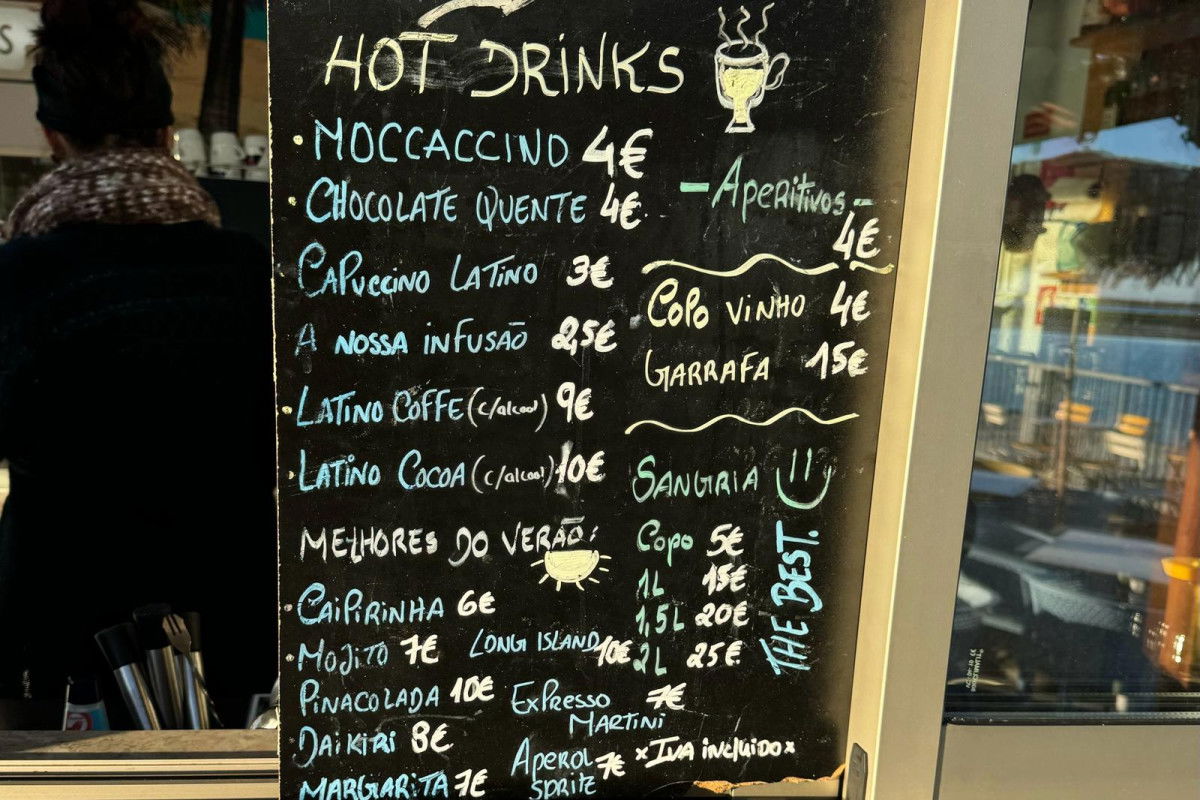 HOT DRINKS
MOCCACCINO 4€
CHOCOLATE QUENTE 4€
CAPUCCINO LATINO 3€
A NOSSA INFUSÃO 2,5€
LATINO COFFE (c/alcool) 9€
LATINO COCOA (c/alcool) 10€
MELHORES DO VERÃO:
CAIPIRINHA 6€
MOJITO 7€
PINACOLADA 10€
DAIKIRI 8€
MARGARITA 7€
LONG ISLAND 10€
EXPRESSO 7€
MARTINI
APEROL 7€
SPRITZ
- Aperitivos -
4€
COPO VINHO 4€
GARRAFA 15€
SANGRIA
Copo 5€
1L 15€
1,5L 20€
2L 25€
THE BEST.
*IVA incluido*